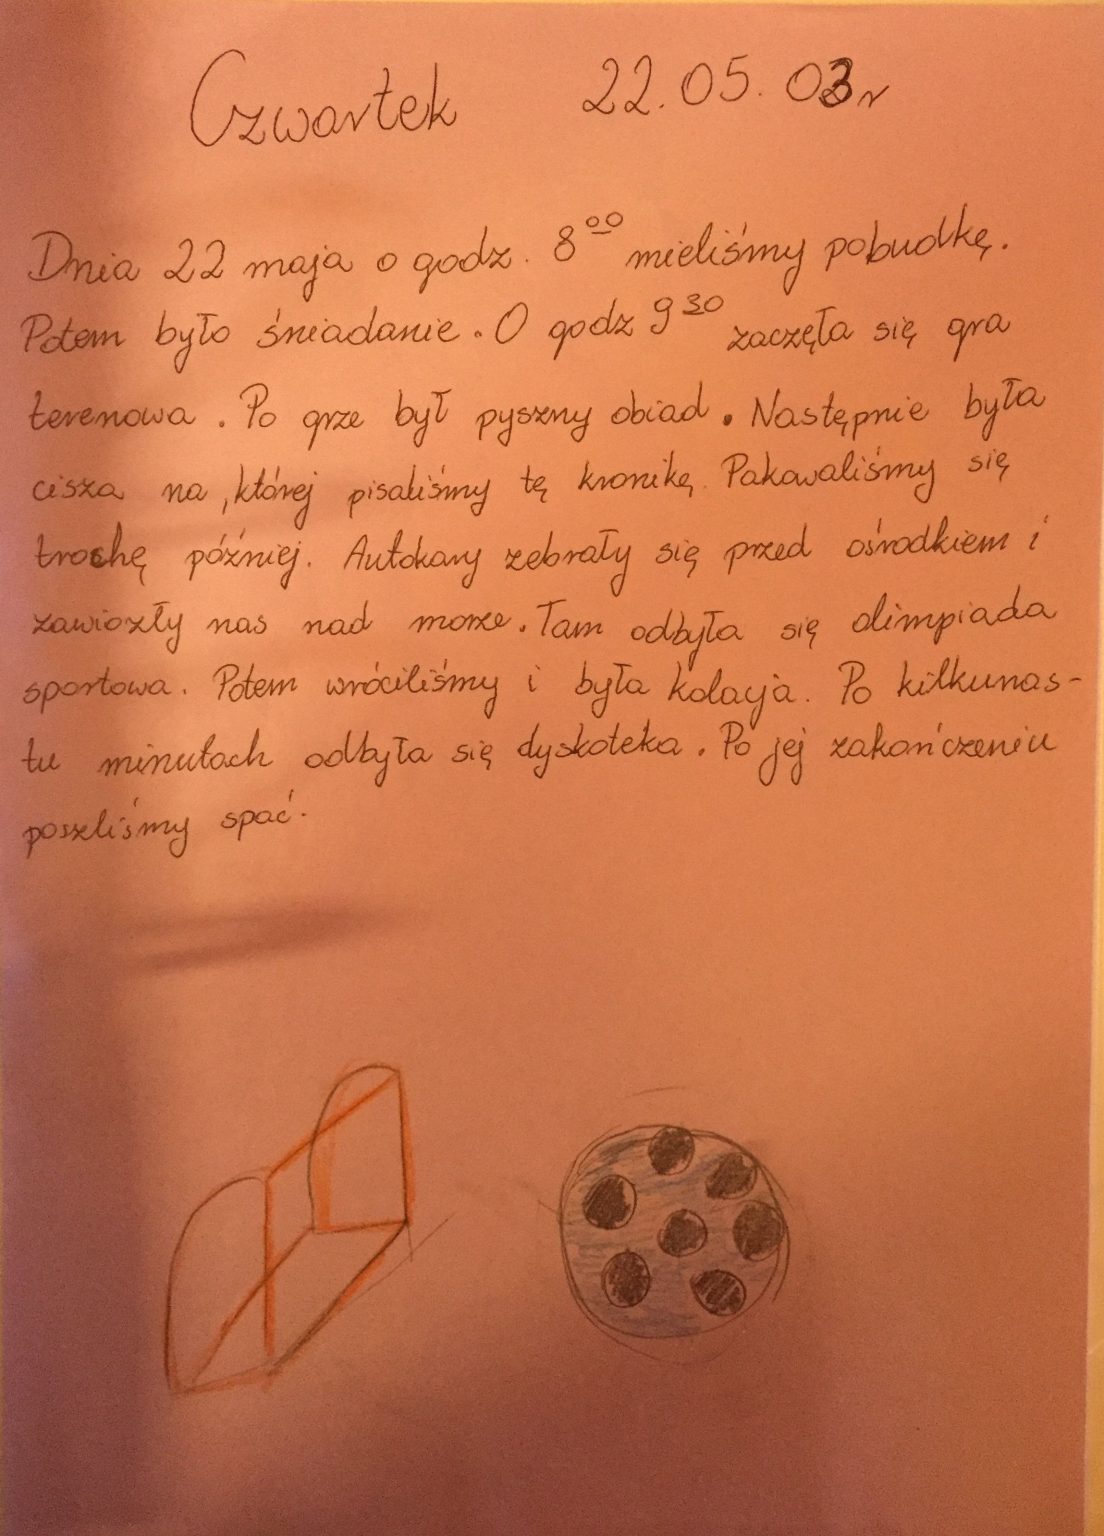 Czwartek 22.05.03r
Dnia 22 maja o godz. 8⁰⁰ mieliśmy pobudkę.
Potem było śniadanie. O godz 9³⁰ zaczęła się gra
terenowa. Po grze był pyszny obiad. Następnie była
cisza na ,której pisaliśmy tę kronikę. Pakowaliśmy się
trochę później. Autokary zebrały się przed ośrodkiem i
zawiozły nas nad morze. Tam odbyła się olimpiada
sportowa. Potem wróciliśmy i była kolacja. Po kilkunas-
tu minutach odbyła się dyskoteka. Po jej zakończeniu
poszliśmy spać.